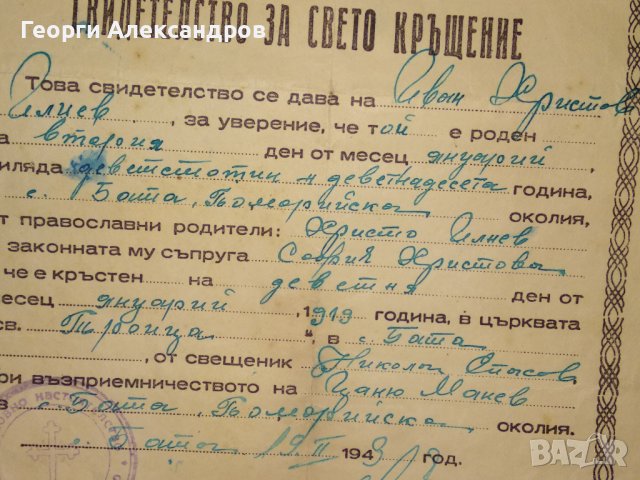 Георги Александров
СВИДЕТЕЛСТВО ЗА СВЕТО КРЪЩЕНИЕ
Това свидетелство се дава на Иван Христов
Илиев, за уверение, че той е роден
а втория ден от месец януарий,
иляда деветстотин и деветнадесета година,
с. Бата, Поморийска околия,
т православни родители: Христо Илиев
законната му съпруга София Христова
че е кръстен на деветия ден от
месец януарий, 1919 година, в църквата
св. Троица", в с. Бата
, от свещеник Никола Стасов
ри възприемничеството на Цаню Манев
з с. Бата, Поморийска околия.
с. Бата 12 II 1943 год.
BAZAR
bg